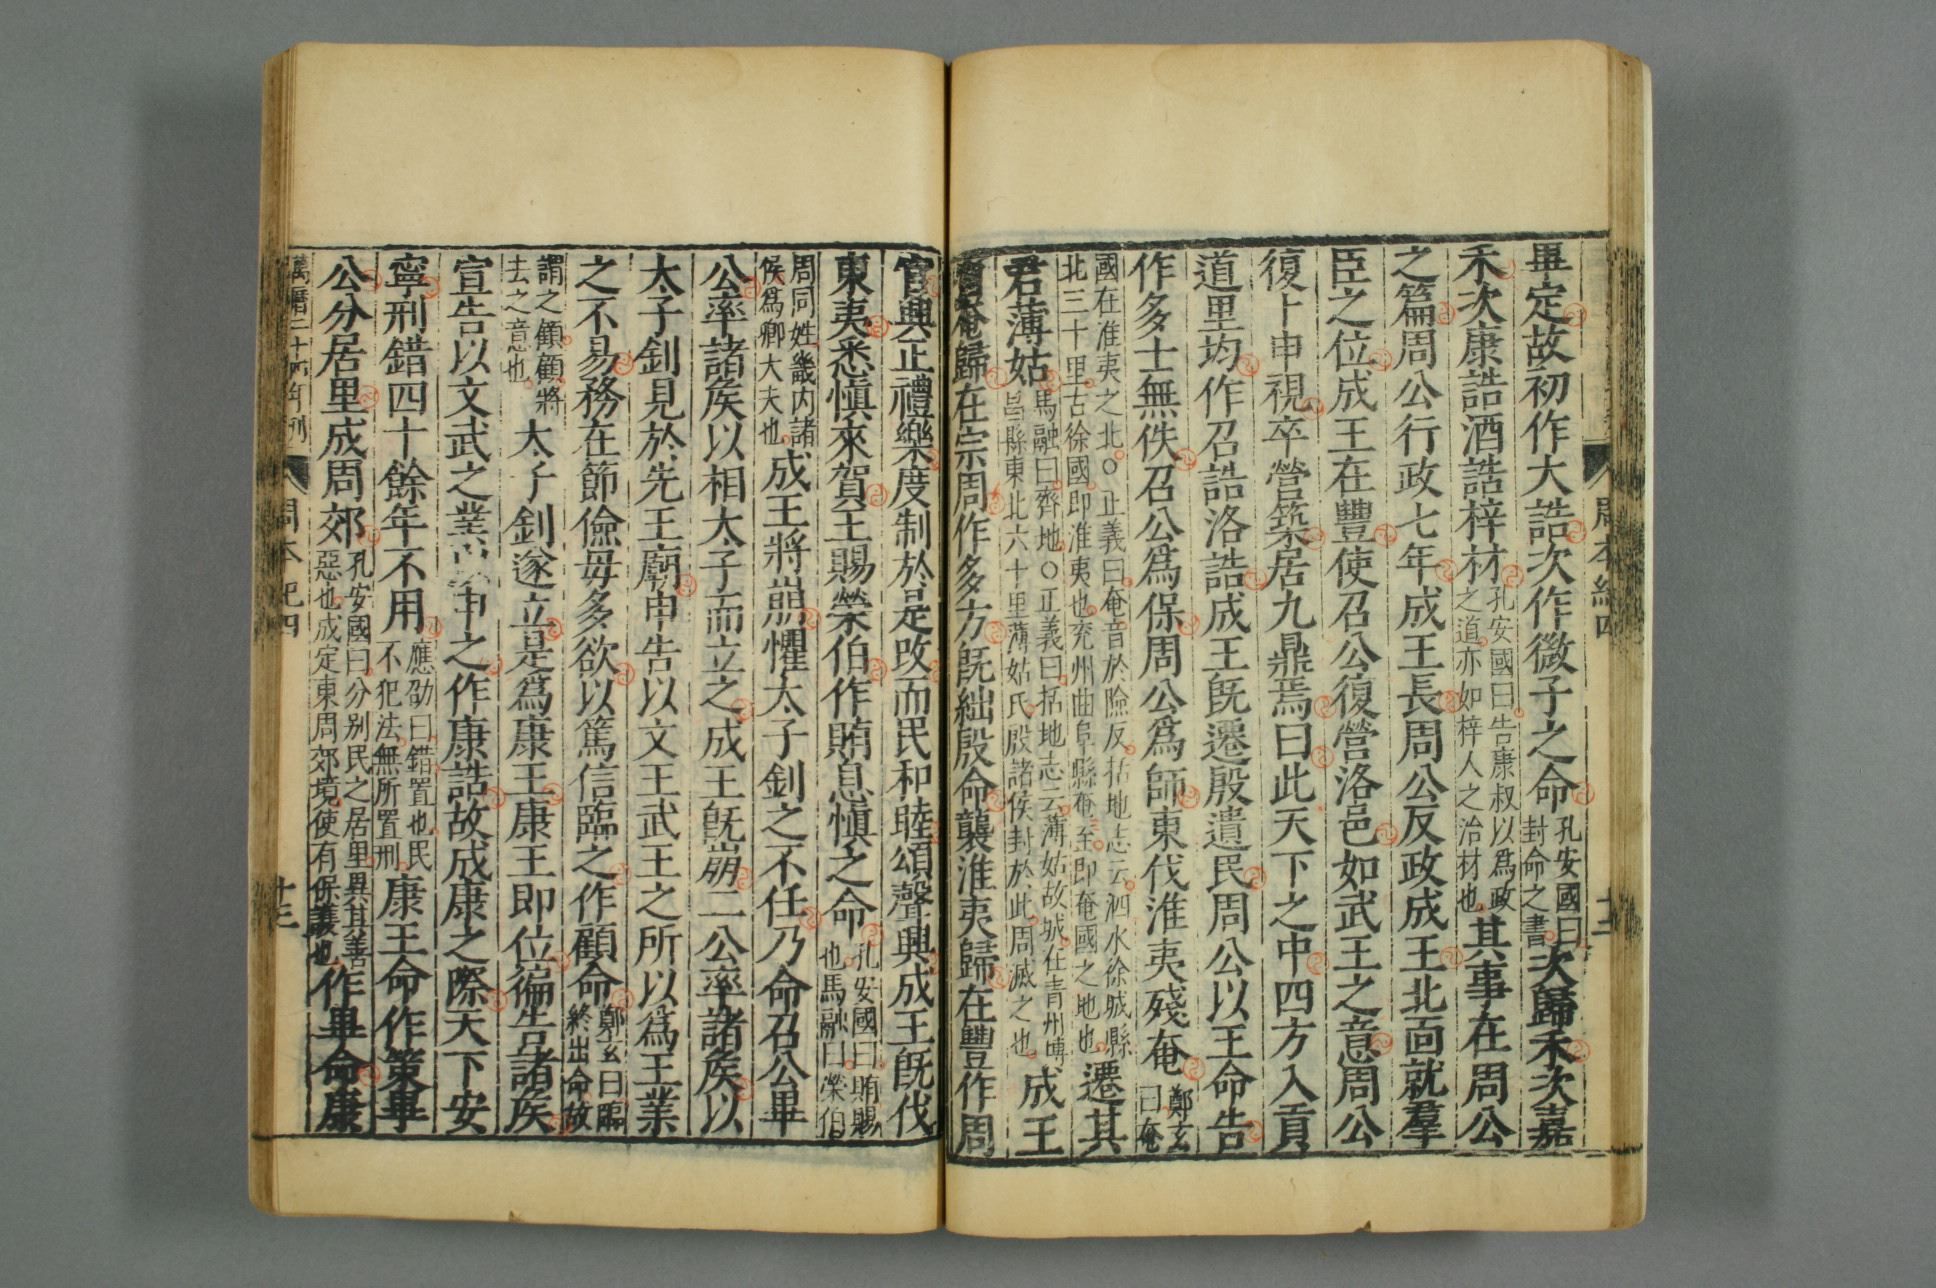 周本紀四
十二
畢定故初作大誥次作微子之命孔安國曰封命之書次歸禾次嘉
禾次康誥酒誥梓材孔安國曰告康叔以為政之道亦如梓人之治材也其事在周公
之篇周公行政七年成王長周公反政成王北面就羣
臣之位成王在豐使召公復營洛邑如武王之意周公
復卜申視卒營築居九鼎焉曰此天下之中四方入貢
道里均作召誥洛誥成王旣遷殷遺民周公以王命告
作多士無佚召公爲保周公爲師東伐淮夷殘奄鄭玄曰奄
國在淮夷之北○正義曰奄音於險反括地志云泗水徐城縣北三十里古徐國即淮夷也兖州曲阜縣奄至即奄國之地也遷其
君薄姑馬融曰齊地○正義曰括地志云薄姑故城在青州博昌縣東北六十里薄姑氏殷諸侯封於此周滅之也成王
奄歸在宗周作多方旣絀殷命襲淮夷歸在豐作周
官興正禮樂度制於是改而民和睦頌聲興成王旣伐
東夷悉愼來賀王賜榮伯作賄息愼之命孔安國曰賄賜也馬融曰榮伯
周同姓畿内諸侯爲卿大夫也成王將崩懼太子釗之不任乃命召公畢
公率諸矦以相太子而立之成王旣崩二公率諸矦以
太子釗見於先王廟申告以文王武王之所以爲王業
之不易務在節儉毋多欲以篤信臨之作顧命鄭玄曰臨終出命故
謂之顧顧將去之意也太子釗遂立是爲康王康王即位徧告諸矦
宣告以文武之業以申之作康誥故成康之際天下安
寧刑錯四十餘年不用應劭曰錯置也民不犯法無所置刑康王命作策畢
公分居里成周郊孔安國曰分别民之居里異其善惡也成定東周郊境使有保護也作畢命康
萬曆二十四年刊
周本紀四
十三